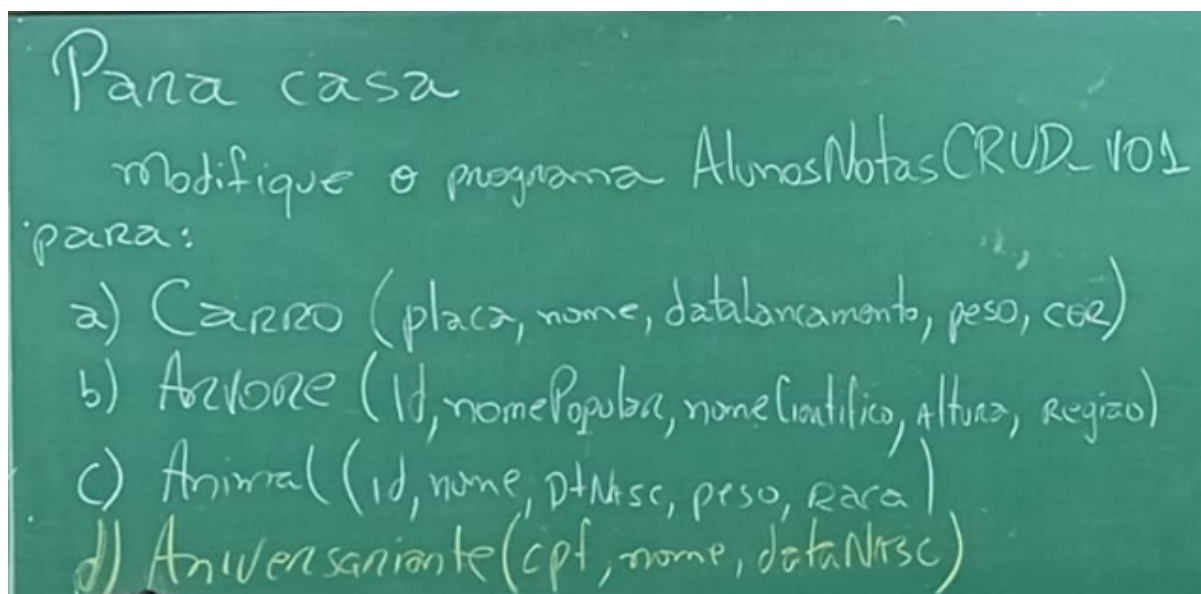 Para casa
modifique o programa AlunosNotasCRUD_V01
para:
a) Carro (placa, nome, dataLancamento, peso, cor)
b) Arvore (Id, nomePopular, nomeCientifico, Altura, Região)
c) Animal (id, nome, DtNasc, peso, Raca)
d) Aniversariante (cpf, nome, dataNasc)